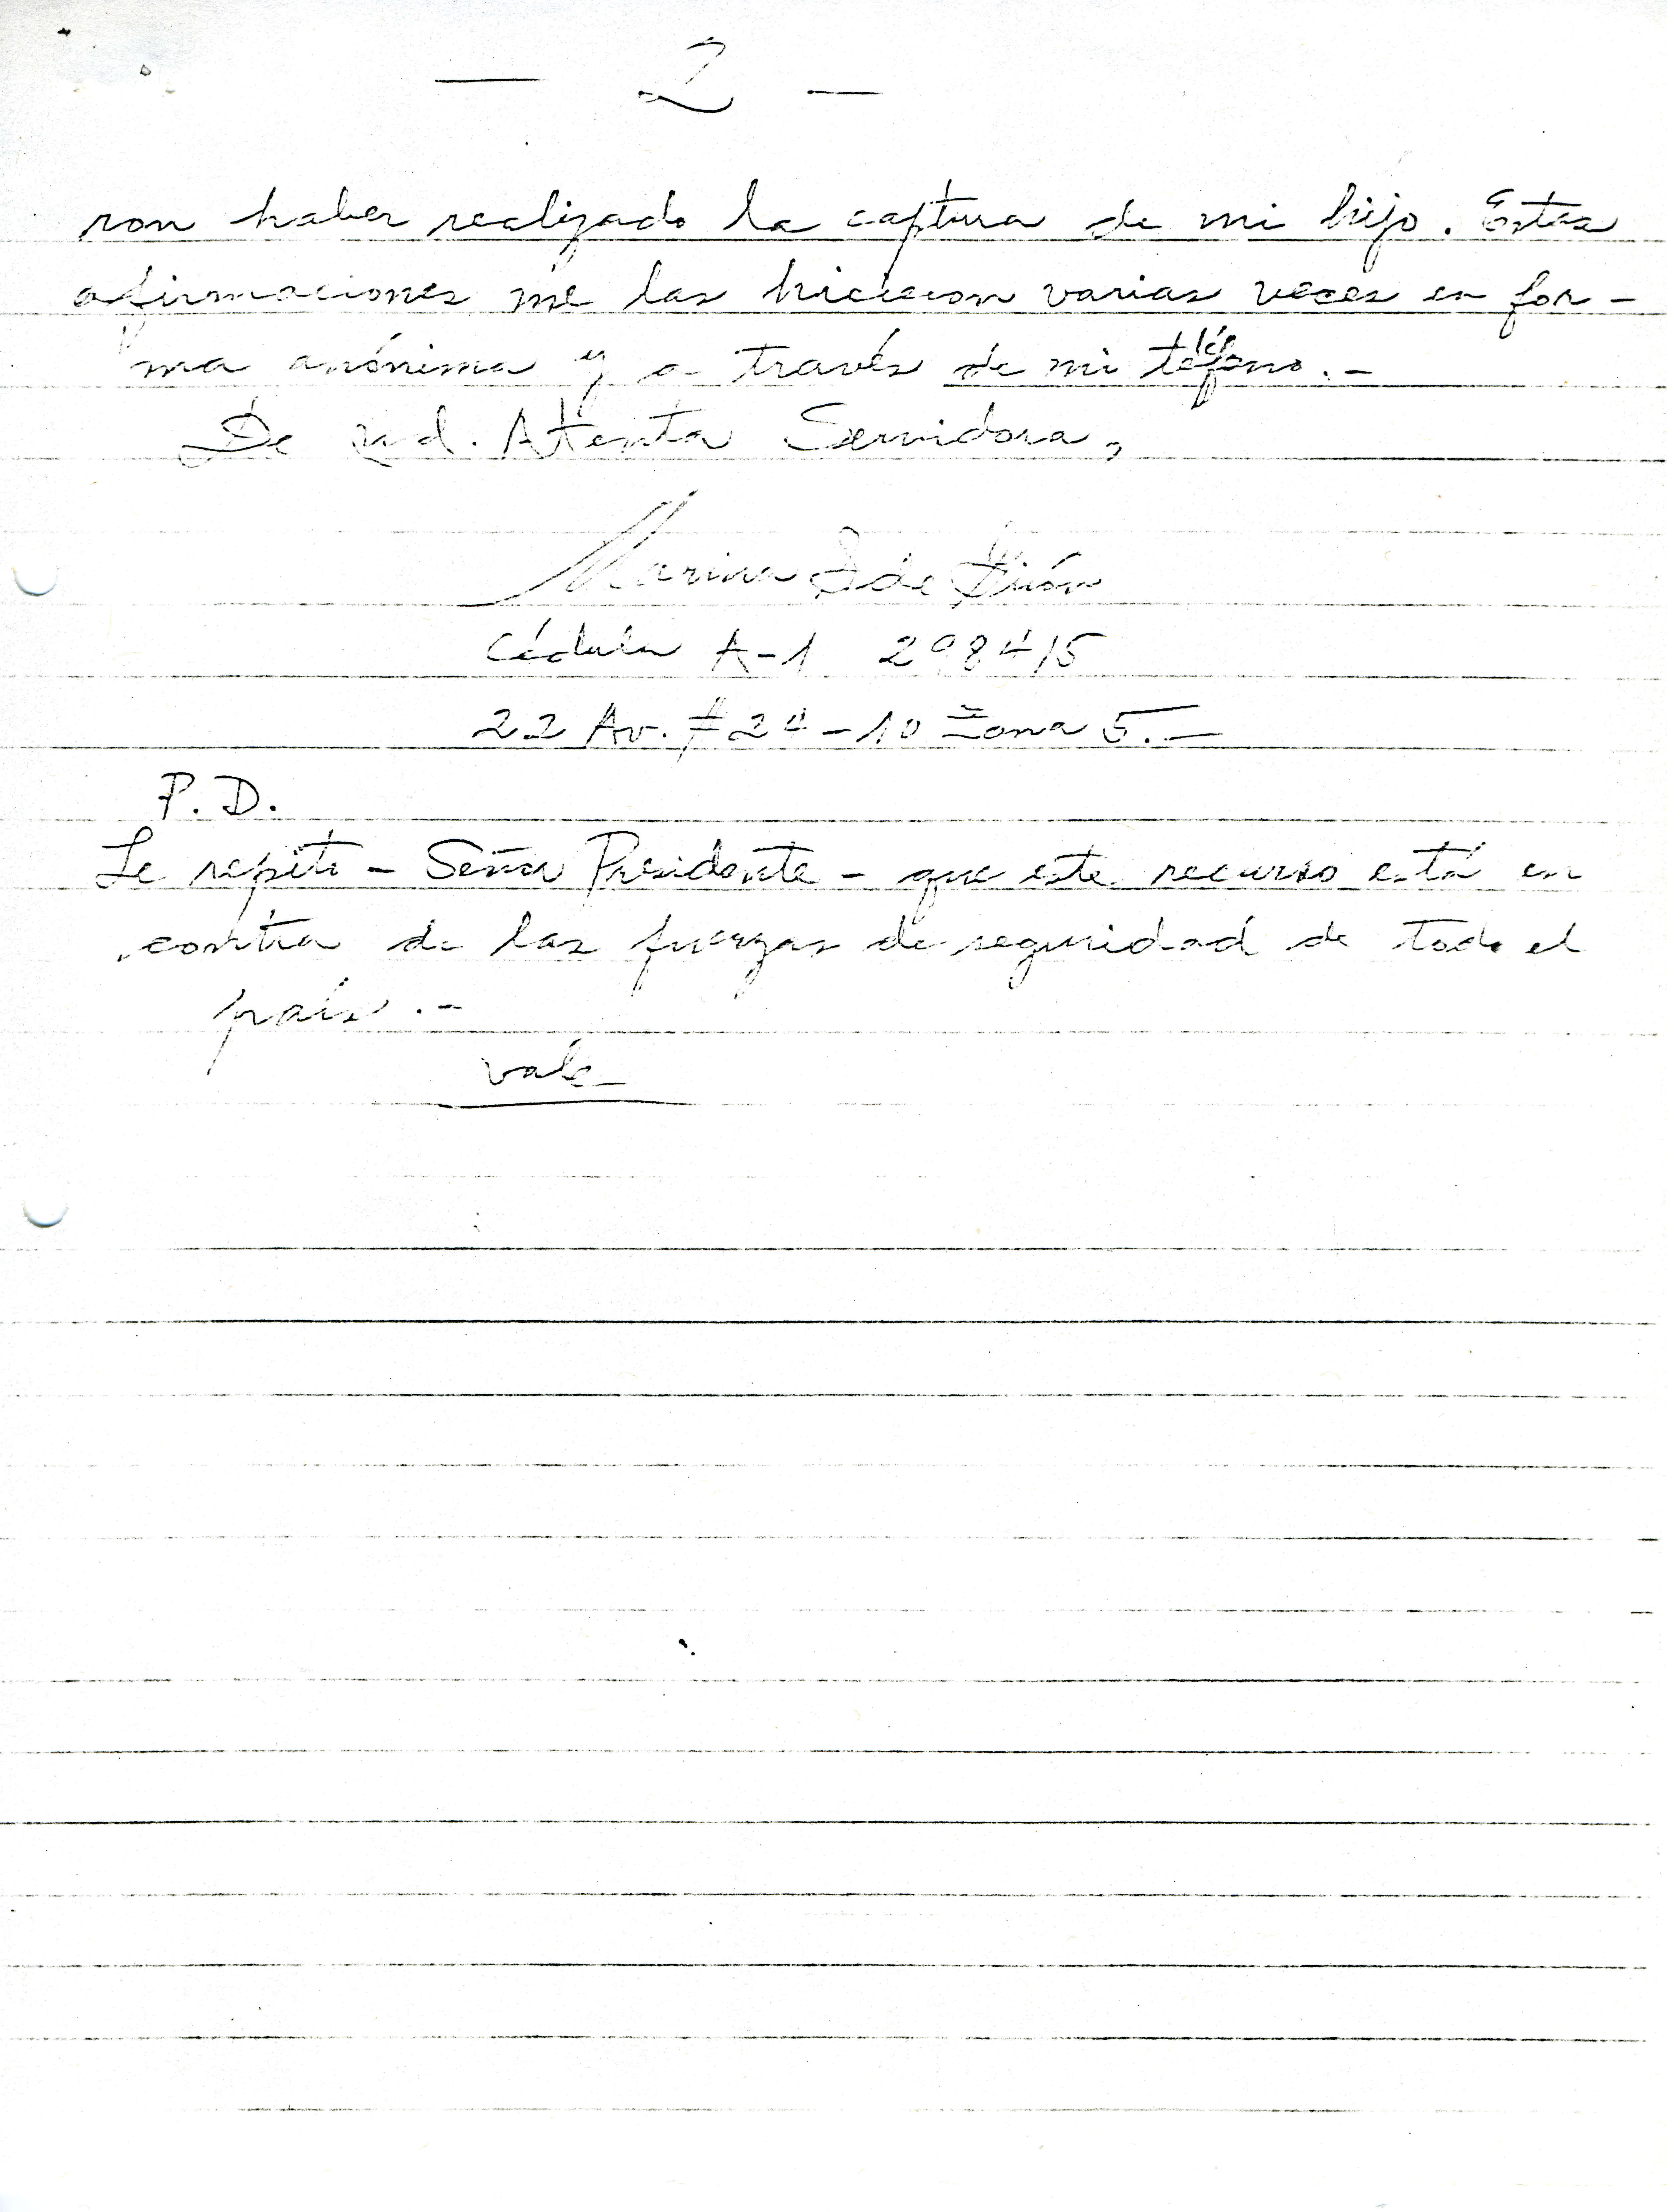 — 2 —
ron haber realizado la captura de mi hijo. Estas
afirmaciones me las hicieron varias veces en for-
ma anónima y a través de mi teléfono.-
De Ud. Atenta Servidora,
Marina de
Cédula A-1 298415
22 Av. #24-10 Zona 5.-
P.D.
Le repito - Señor Presidente - que este recurso está en
contra de las fuerzas de seguridad de todo el
país.-
vale